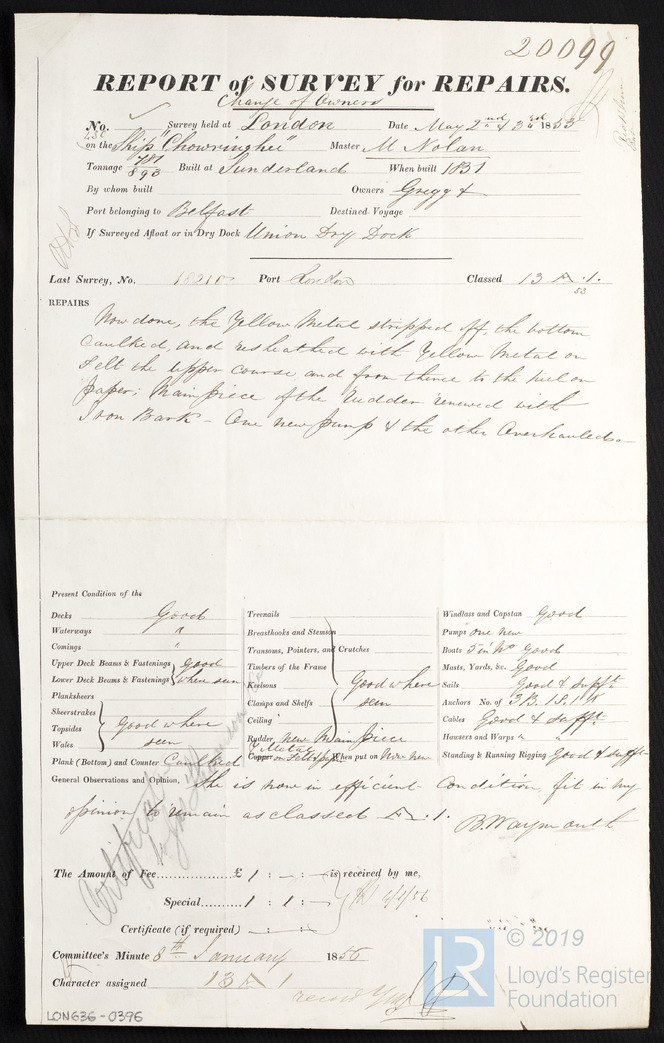 20099
REPORT of SURVEY for REPAIRS.
Change of Owners
No. Survey held at London Date May 2nd & 3rd 1853
on the Ship "Chowringhee" Master M Nolan
Tonnage 781 / 893 Built at Sunderland When built 1851
By whom built Owners Gregg &
Port belonging to Belfast Destined Voyage
If Surveyed Afloat or in Dry Dock Union Dry Dock
Last Survey, No. 18210 Port London Classed 13 A.1.
53
REPAIRS
Now done, the Yellow Metal stripped off, the bottom
caulked, and resheathed with Yellow Metal on
Felt the upper course and from thence to the keel on
paper; Main piece of the Rudder renewed with
Iron Bark - One new pump & the other Overhauled.
Present Condition of the
Decks Good
Waterways "
Comings "
Upper Deck Beams & Fastenings Good
Lower Deck Beams & Fastenings where seen
Planksheers
Sheerstrakes
Topsides Good where
Wales seen
Plank (Bottom) and Counter Caulked
Treenails
Breasthooks and Stemson
Transoms, Pointers, and Crutches
Timbers of the Frame
Keelsons Good where
Clamps and Shelfs seen
Ceiling
Rudder New Main piece
Y Metal
Copper on Felt & paper When put on Now new
Windlass and Capstan Good
Pumps one new
Boats 5 in No Good
Masts, Yards, &c. Good
Sails Good & supft
Anchors No. of 3B. 1S. 1K
Cables Good & supft
Hawsers and Warps " "
Standing & Running Rigging Good & supft
General Observations and Opinion, She is now in efficient condition, fit in my
opinion to remain as classed A.1. B. Waymouth
The Amount of Fee £ 1 : — : — is received by me,
Special 1 : 1 : —
4/1/56
Certificate (if required) — : — : —
Certificate
Committee's Minute 8th January 1856
Character assigned 13 A 1
LON636-0396
© 2019
LR
Lloyd's Register
Foundation